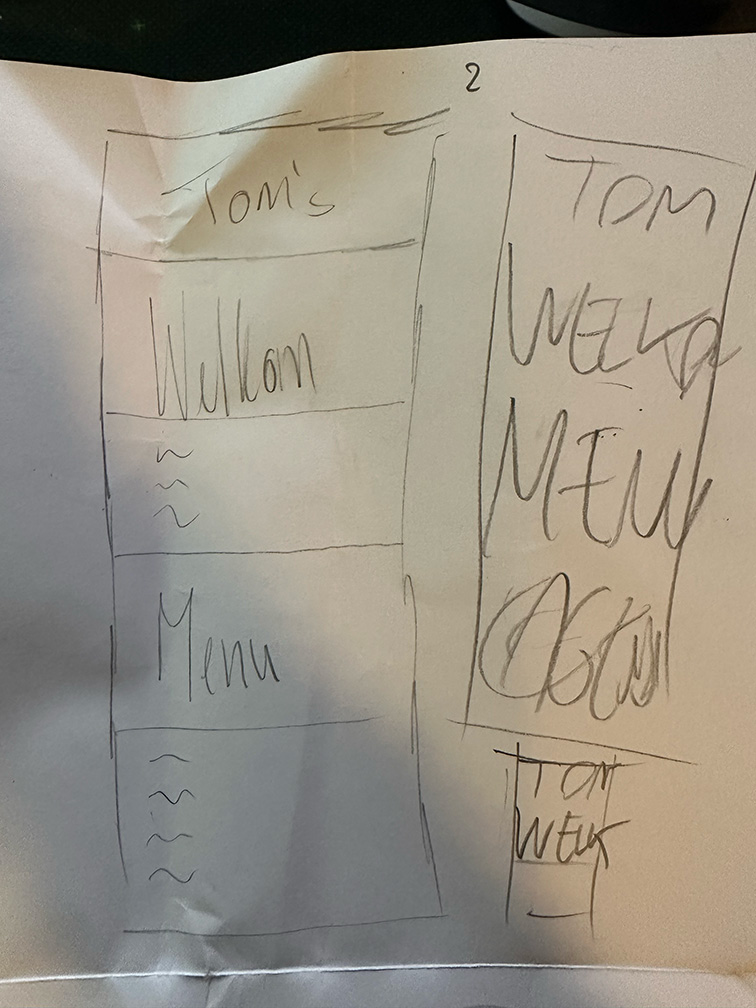 2
Tom's
Welkom
Menu
TOM
MENU
TOM
WELK